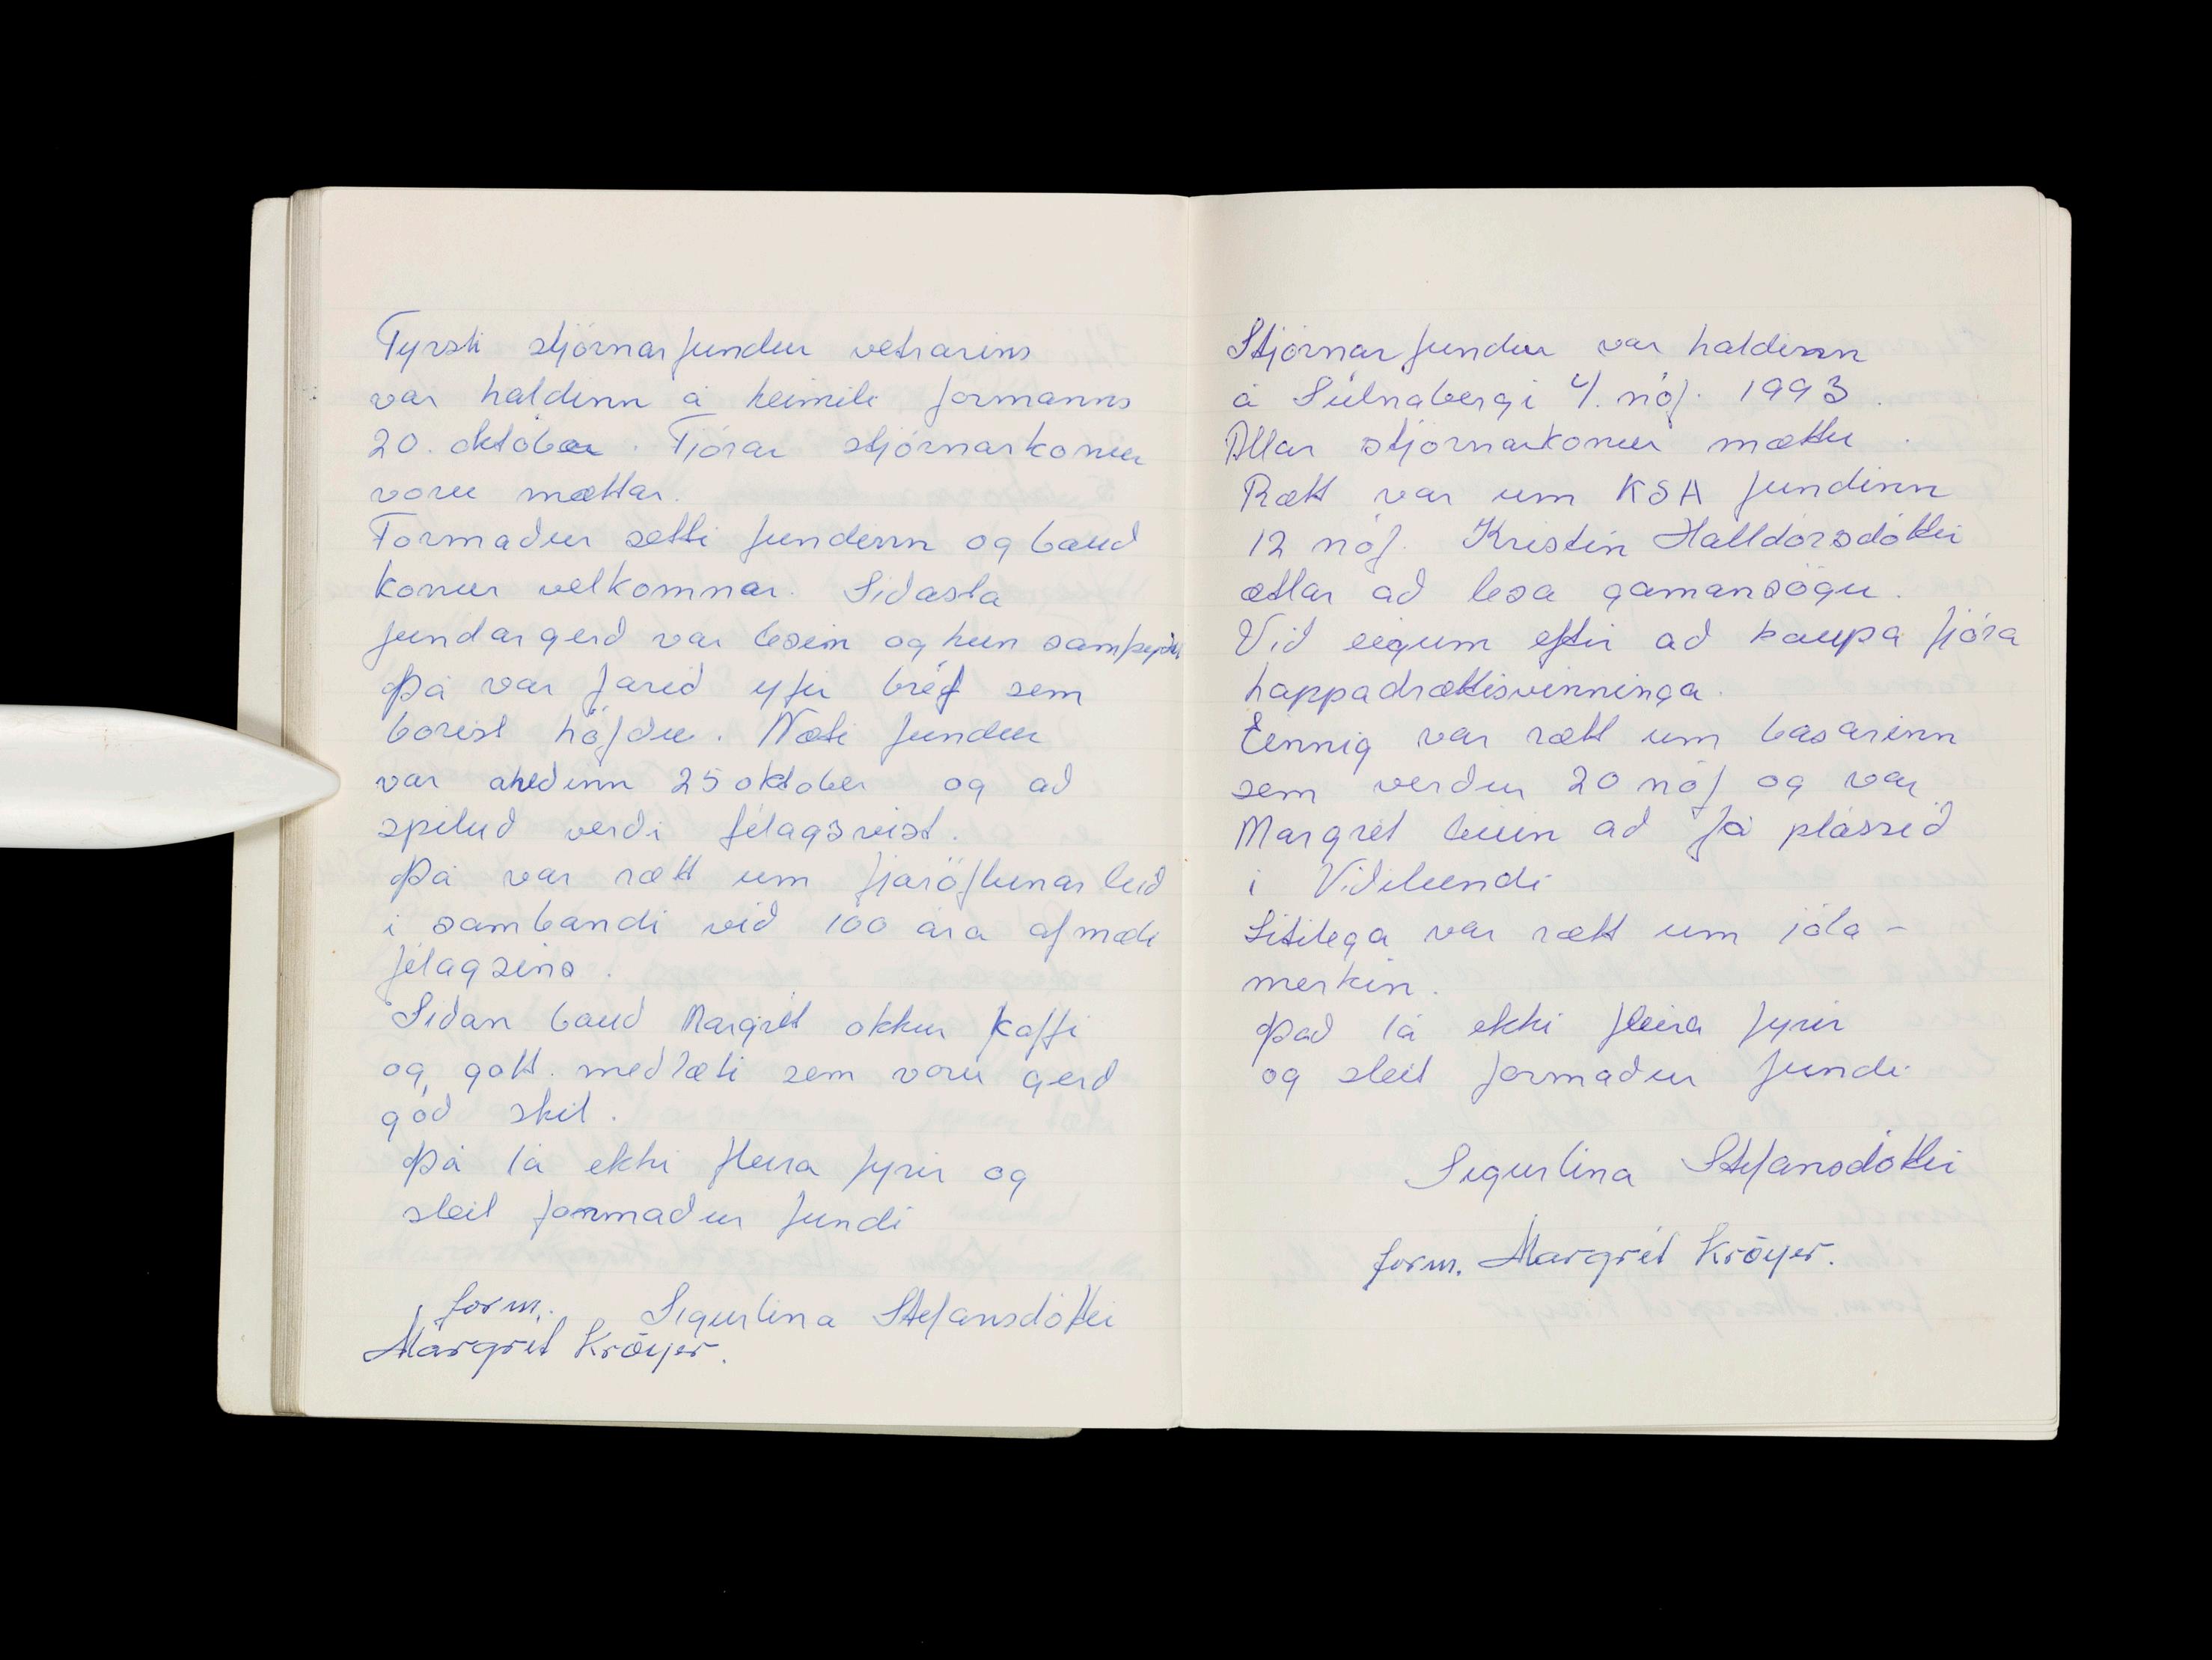 Fyrsti stjórnarfundur vetrarins
var haldinn á heimili formanns
20. október. Fjórar stjórnarkonur
voru mættar.
Formaður setti fundinn og bauð
konur velkomnar. Síðasta
fundargerð var lesin og hún samþykkt
Þá var farið yfir bréf sem
borist höfðu. Næti fundur
var áhveðinn 25 oktober og að
spiluð verði félagsvist.
Þá var rætt um fjáröflunarleið
í sambandi við 100 ára afmæli
félagsins.
Síðan bauð Margrét okkur kaffi
og gott meðlæti sem voru gerð
góð skil.
Þá lá ekki fleira fyrir og
sleit formaður fundi
form. Sigurlína Stefánsdóttir
Margrét Kröyer.
Stjórnarfundur var haldinn
á Súlnabergi 4. nóf. 1993.
Allar stjórnarkonur mættu.
Rætt var um KSA fundinn
12 nóf. Kristín Halldórsdóttir
ætlar að lesa gamansögu.
Við eigum eftir að kaupa fjóra
happadrættisvinninga.
Einnig var rætt um basarinn
sem verður 20 nóf og var
Margrét búin að fá plássið
í Víðilundi
Lítilega var rætt um jóla-
merkin.
Það lá ekki fleira fyrir
og sleit formaður fundi
Sigurlína Stefánsdóttir
form. Margrét Kröyer.